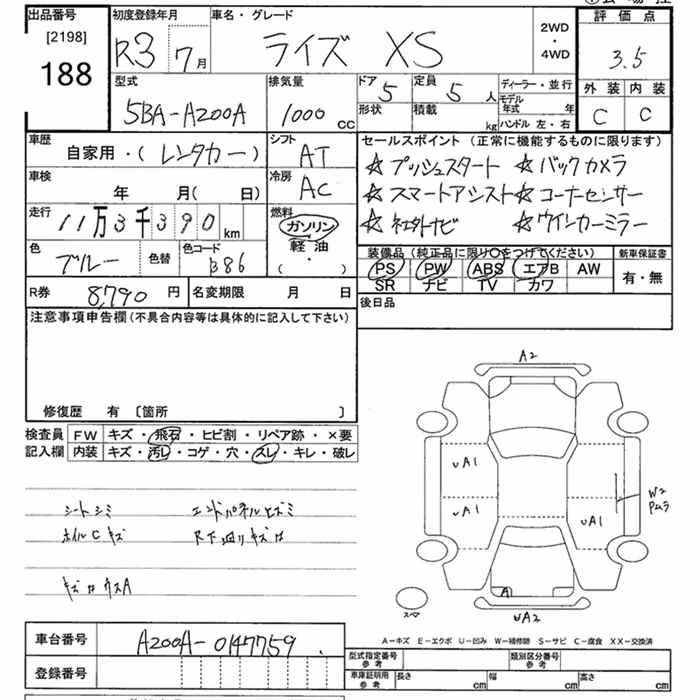 出品番号
[2198]
188
初度登録年月
R3 7月
車名・グレード
ライズ XS
2WD
・
4WD
評価点
3.5
外装 内装
C C
型式
5BA-A200A
排気量
1000 cc
ドア 5
定員 5 人
形状
積載 kg
ディーラー・並行
モデル年式 年
ハンドル 左・右
車歴
自家用・(レンタカー)
シフト
AT
車検
年 月( 日)
冷房
AC
走行
11万3千390 km
燃料
ガソリン
軽油
( ・ )
色
ブルー
色替
色コード
B86
セールスポイント(正常に機能するものに限ります)
☆プッシュスタート ☆バックカメラ
☆スマートアシスト ☆コーナーセンサー
☆社外ナビ ☆ウインカーミラー
装備品(純正品に限り○をつけてください)
新車保証書
PS PW ABS エアB AW
SR ナビ TV カワ
有・無
R券 8,790 円
名変期限 月 日
後日品
注意事項申告欄(不具合内容等は具体的に記入して下さい)
修復歴 有 〔箇所 〕
検査員記入欄
FW キズ・飛石・ヒビ割・リペア跡・×要
内装 キズ・汚レ・コゲ・穴・スレ・キレ・破レ
シートシミ エンドパネルヒズミ
ホイルCキズ R下廻りキズ
A2
UA1
UA1
UA1
W2
Pムラ
A1
スペア
UA2
A-キズ E-エクボ U-凹み W-補修跡 S-サビ C-腐食 XX-交換済
車台番号
A200A-0147759
登録番号
型式指定番号 参考
類別区分番号 参考
車庫証明用 参考
長さ cm
幅 cm
高さ cm